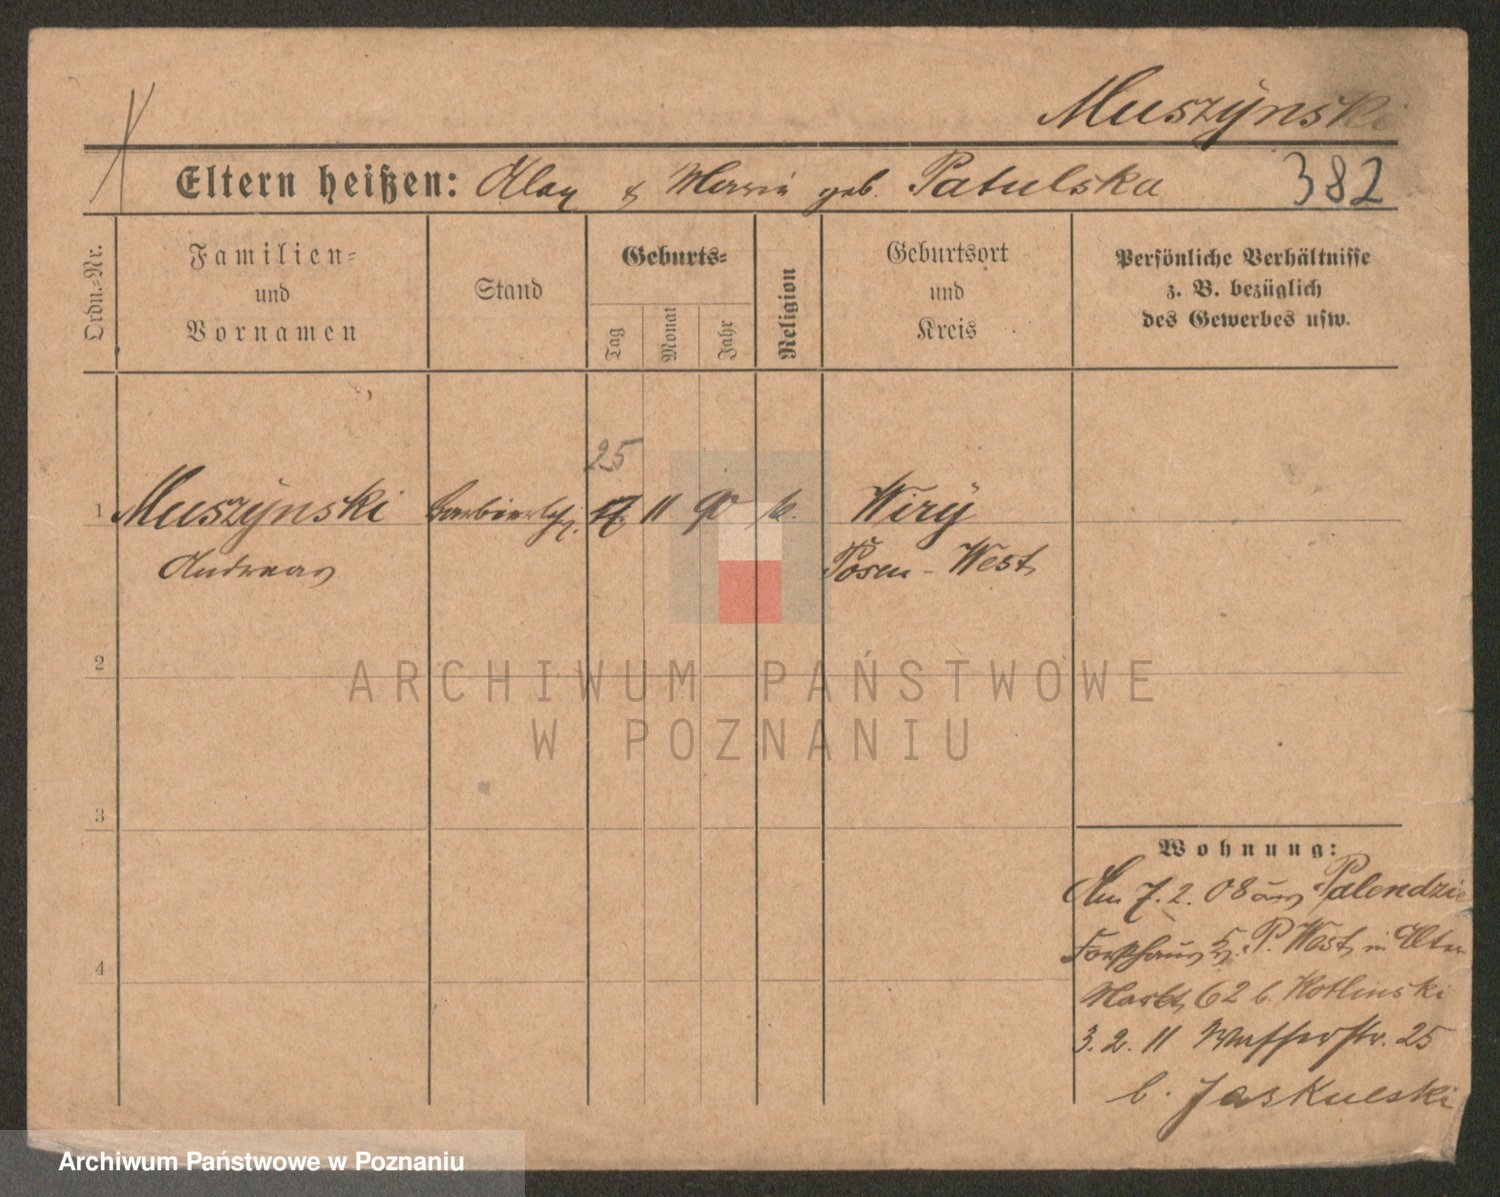 Muszýnski
Eltern heißen: & Maria geb. Patulska 382
Ordn.-Nr.
Familien-
und
Vornamen
Stand
Geburts-
Tag
Monat
Jahr
Religion
Geburtsort
und
Kreis
Persönliche Verhältnisse
z. B. bezüglich
des Gewerbes usw.
25
1 Muszýnski 11 90 k. Wirÿ
Andreas Posen - West
2
ARCHIWUM PAŃSTWOWE
W POZNANIU
3
Wohnung:
Am 7. 2. 08 aus Palendzie
Forsthaus Kr. P. West in Alter
Markt 62 b. Kotlinski
3. 2. 11 Wasserstr. 25
b. Jaskulski
4
Archiwum Państwowe w Poznaniu